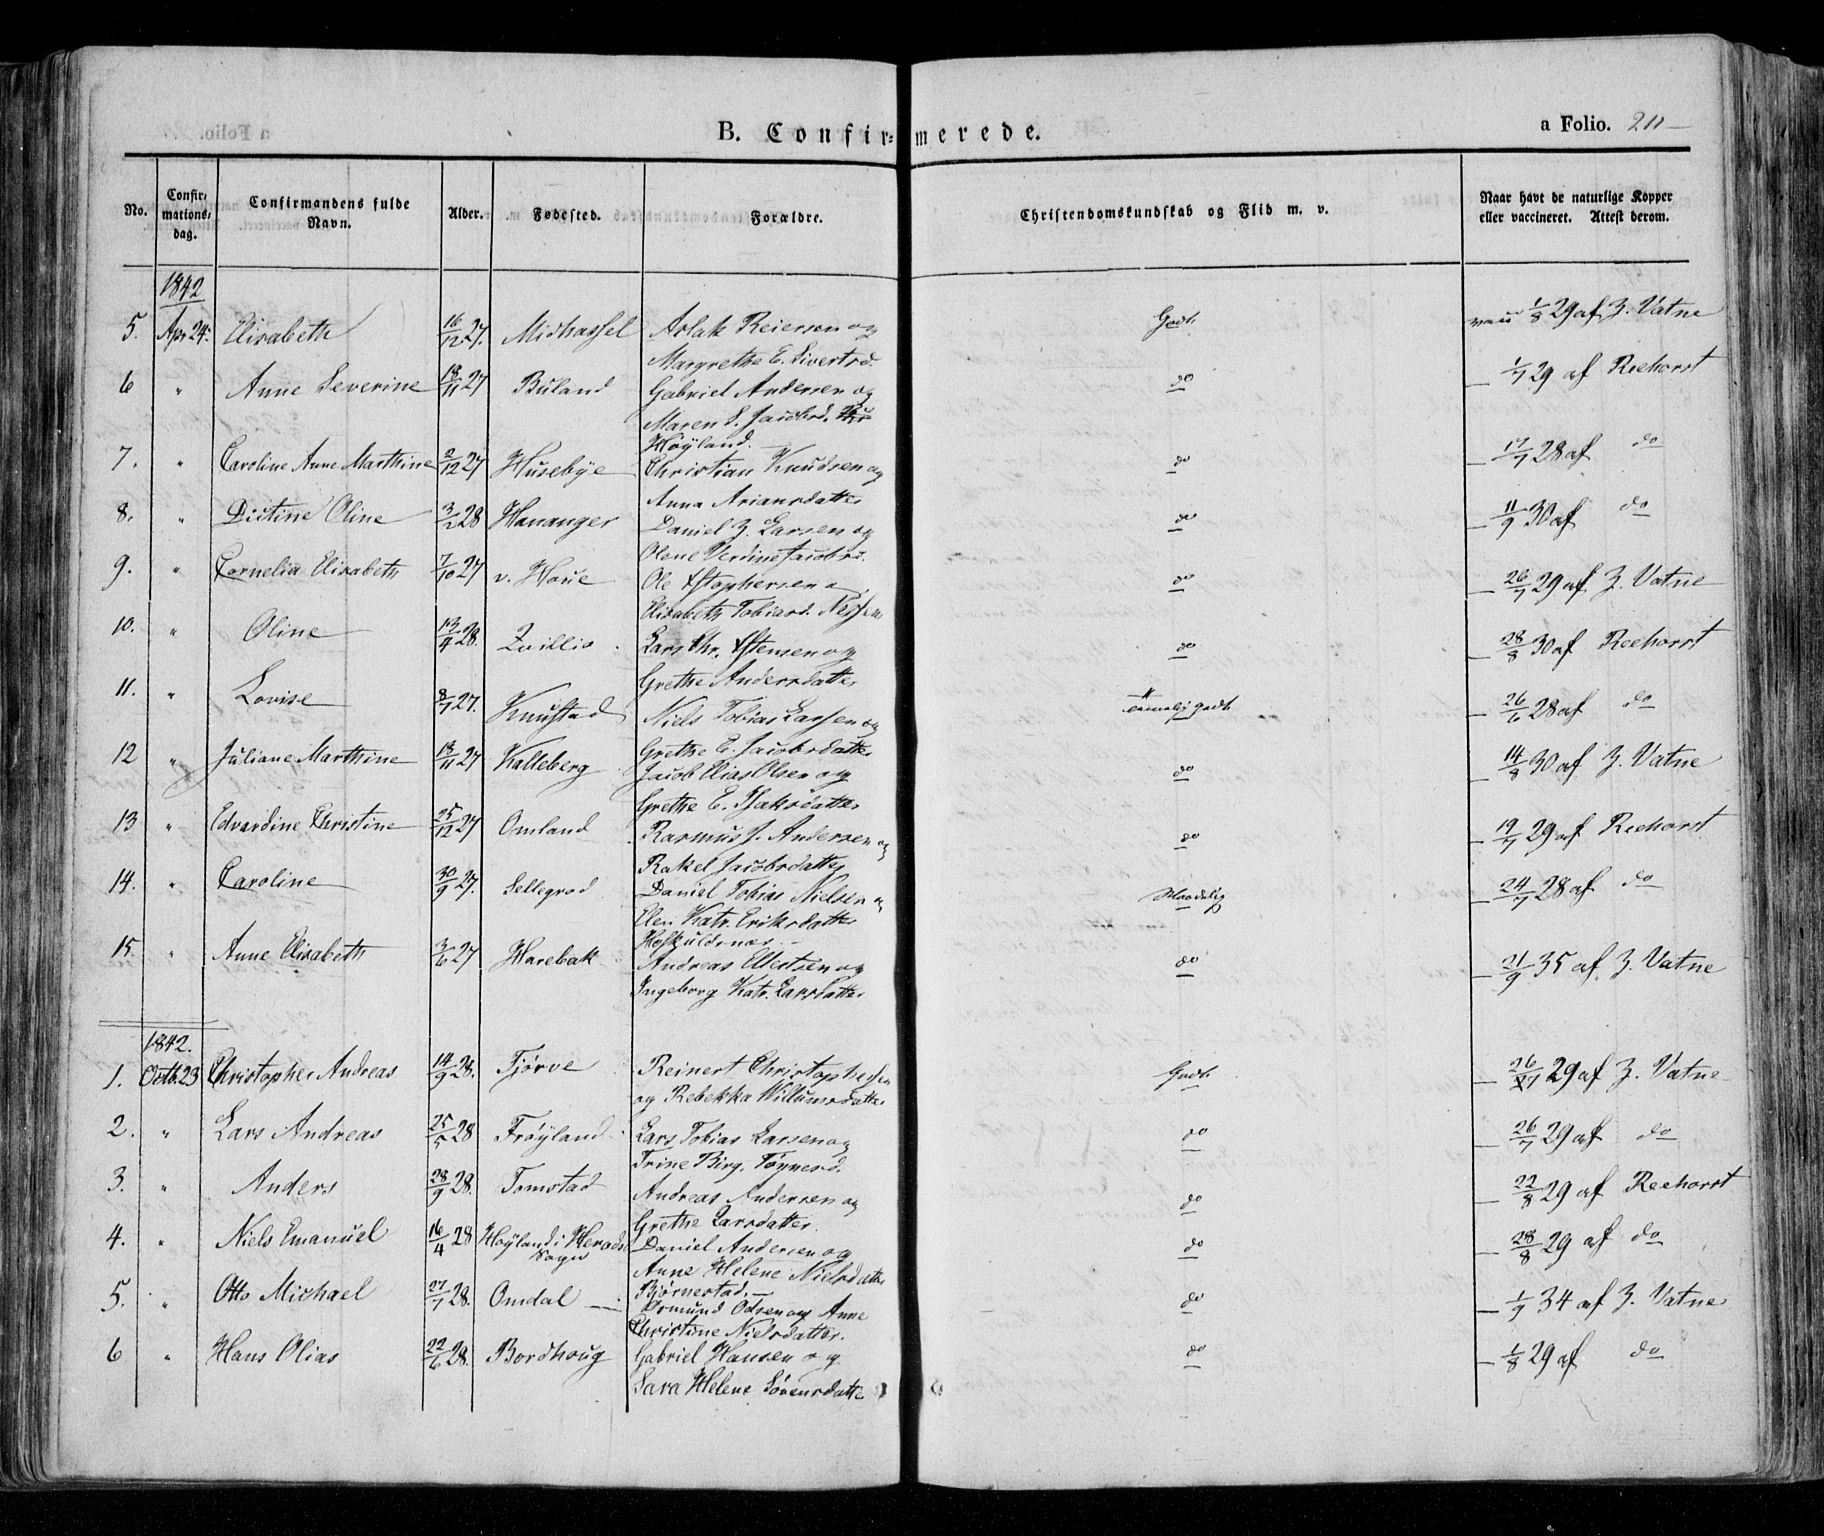 B. Confirmerede.
a Folio. 211
No. Confirmations, dag. Confirmandens fulde Navn. Alder. Fødested. Forældre. Christendomskundskab og Flid m. v. Naar havt de naturlige Kopper eller vaccineret. Attest derom.
1842
5. Apr 24. Elisabeth 16/12 27. Midhassel Aslak Reiersen og Godt. 1/8 29 af Z. Vatne
Margrethe E. Sivertsd.
6 " Anne Severine 18/11 27 Buland Gabriel Andersen og do — 1/7 29 af Reehorst
Maren S. Jacobsd.
Høyland.
7. " Caroline Anne Marthine 2/12 27 Husebye Christian Knudsen og do — 17/7 28 af do
Anna Ariansdatter
8. " Dictine Oline 3/2 28 Hananger Daniel Z. Larsen og do — 11/9 30 af do
Olene Verdine Jacobsd.
9. " Cornelia Elisabeth 7/10 27 v. Houe Ole Xstophersen do — 26/7 29 af Z. Vatne
Elisabeth Tobiasd.
10. " Oline 13/4 28. Lars Chr. Xstensen og do — 28/8 30 af Reehorst
Grethe Andersdatter
11. " Lovise 8/7 27. Knustad Niels Tobias Larsen og temmelig godt — 26/6 28 af do
Grethe E. Jacobsdatter
12 " Juliane Marthine 18/11 27 Kalleberg Jacob Elias Olsen og do — 14/8 30 af Z. Vatne
Grethe E. Isaksdatter
13 " Edvardine Christine 25/12 27 Omland Rasmus J. Andersen og do — 19/7 29 af Reehorst
Rakel Jacobsdatter
14. " Caroline 30/9 27. Sellegrod Daniel Tobias Nielsen Maadelig — 24/7 28 af do
Elen Katr. Eriksdatter
Høskuldsnæs.
15. " Anne Elisabeth 3/6 27 Harebak Andreas Ellertsen og do — 21/9 35 af Z. Vatne
Ingeborg Katr. Larsdatter
1842.
1. Octb. 23 Christopher Andreas 14/9 28. Tjørve Reinert Christophersen Godt. — 26/7 29 af Z. Vatne
og Rebekka Willumsdatter
2. " Lars Andreas 25/5 28 Frøyland Lars Tobias Larsen og do — 26/7 29 af do
Trine Birg. Tønnesd.
3. " Anders 28/9 28. Tomstad Andreas Andersen og do — 22/8 29 af Reehorst
Grethe Larsdatter.
4. " Niels Emanuel 16/4 28 Høyland i Herads Daniel Andersen og do — 28/8 29 af do
Sogn Anne Helene Nielsdatter
Bjørnestad. —
5. " Otto Michael 27/7 28. Omdal — Osmund Odsen og Anne do — 1/9 34 af Z. Vatne
Christine Nielsdatter.
6 " Hans Olias 22/6 28. Bordhoug Gabriel Hansen og do — 1/8 29 af do
Sara Helene Sørensdatter